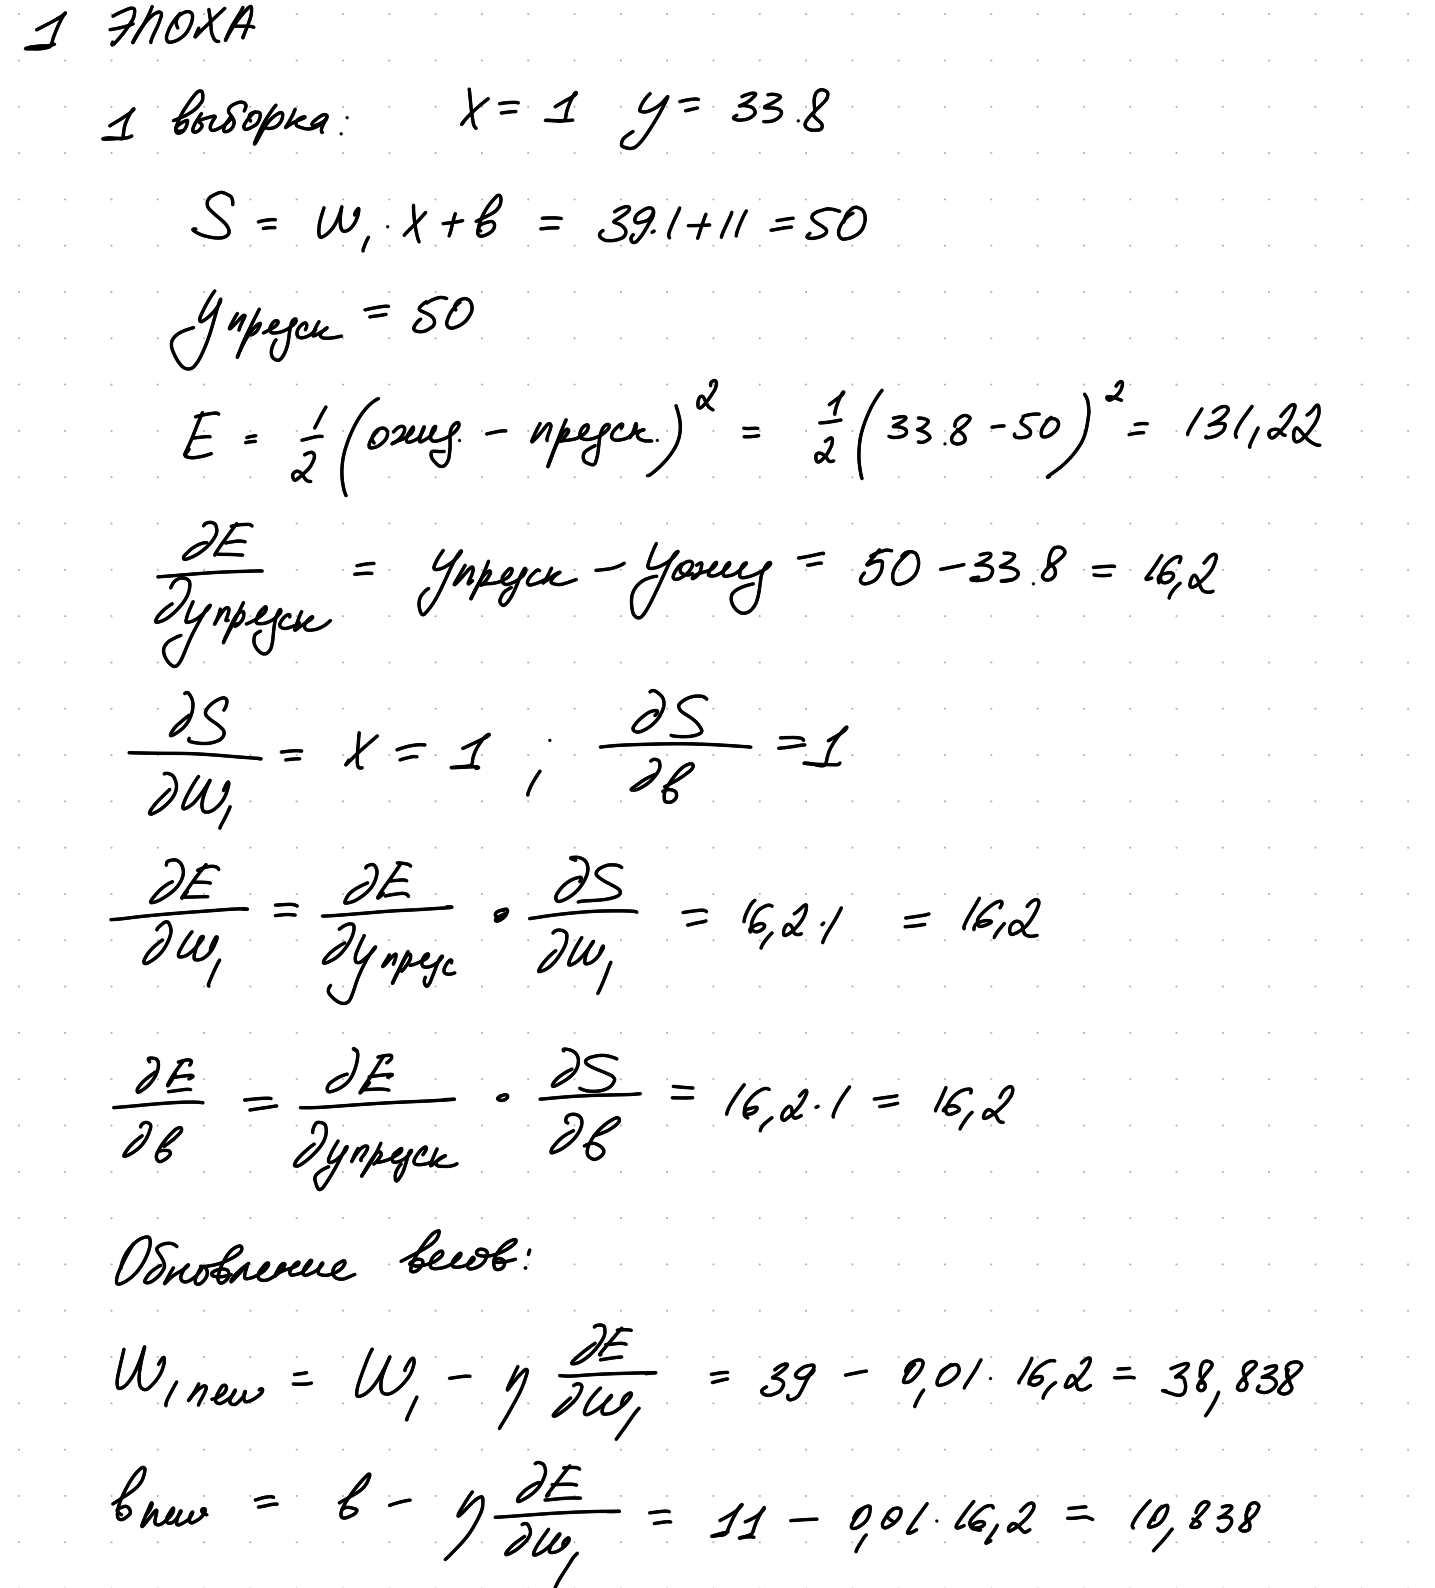 1 ЭПОХА
1 выборка: x = 1 y = 33.8
S = w₁ · x + b = 39·1+11 = 50
yпредск = 50
E = 1/2 (ожид. − предск.)² = 1/2 (33.8 − 50)² = 131,22
∂E/∂yпредск = yпредск − yожид = 50 − 33.8 = 16,2
∂S/∂w₁ = x = 1 ; ∂S/∂b = 1
∂E/∂w₁ = ∂E/∂yпредс • ∂S/∂w₁ = 16,2·1 = 16,2
∂E/∂b = ∂E/∂yпредск · ∂S/∂b = 16,2·1 = 16,2
Обновление весов:
W₁ new = W₁ − η ∂E/∂w₁ = 39 − 0,01· 16,2 = 38,838
bnew = b − η ∂E/∂w₁ = 11 − 0,01· 16,2 = 10,838